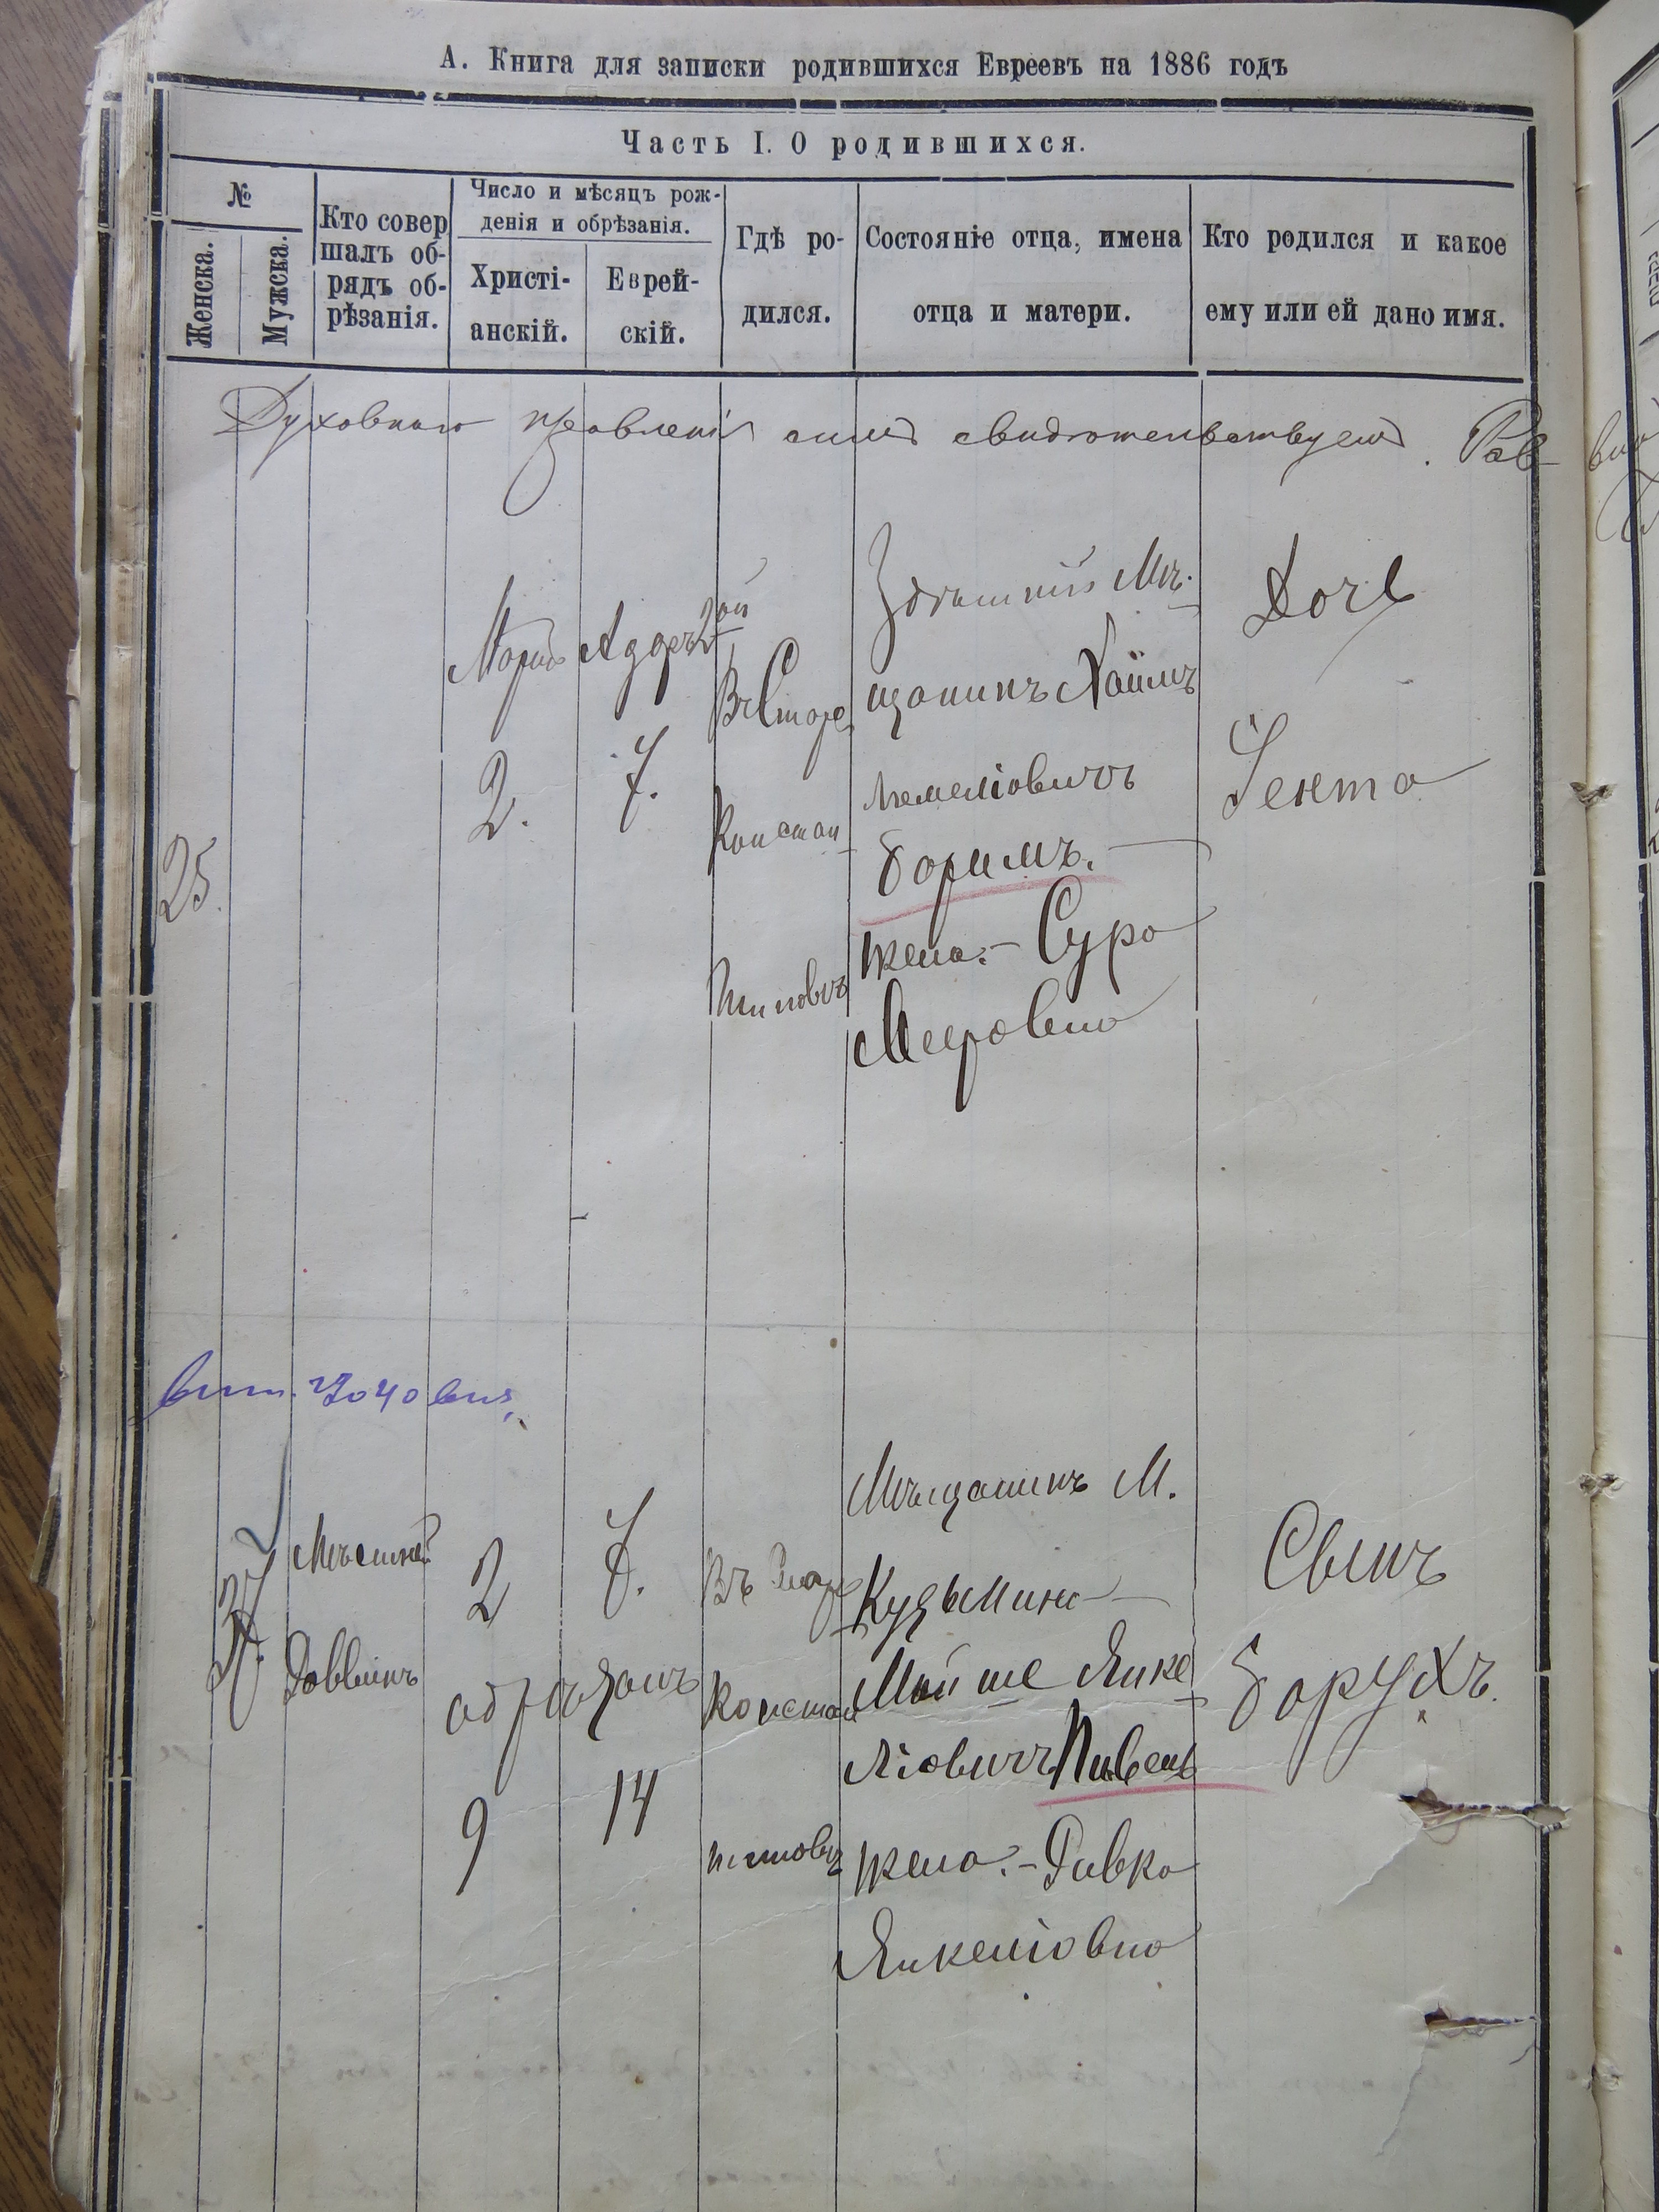 А. Книга для записки родившихся Евреевъ на 1886 годъ
Часть I. О родившихся.
№
Женска.
Мужска.
Кто совер
шалъ об-
рядъ об-
рѣзанія.
Число и мѣсяцъ рож-
денія и обрѣзанія.
Христі-
анскій.
Еврей-
скій.
Гдѣ ро-
дился.
Состояніе отца, имена
отца и матери.
Кто родился и какое
ему или ей дано имя.
Духовнаго правленія симъ свидѣтельствуемъ. Рав-
25
Марта
2.
Аддеръ 2ой
7.
Въ Старо
Констан
тиновѣ
Здѣшній Мѣ-
щанинъ Хаимъ
Боримъ.
жена.- Сура
Мееровна
Дочь
Гента
37
Мѣстный
Раввинъ
2
обрѣзанъ
9
7.
14
Въ Старо
Констан
тиновѣ
Мѣщанинъ М.
Кузьмина
Мойше Янке
ліовичъ Пивень
жена.- Ривка
Янкеліовна
Сынъ
Борухъ.